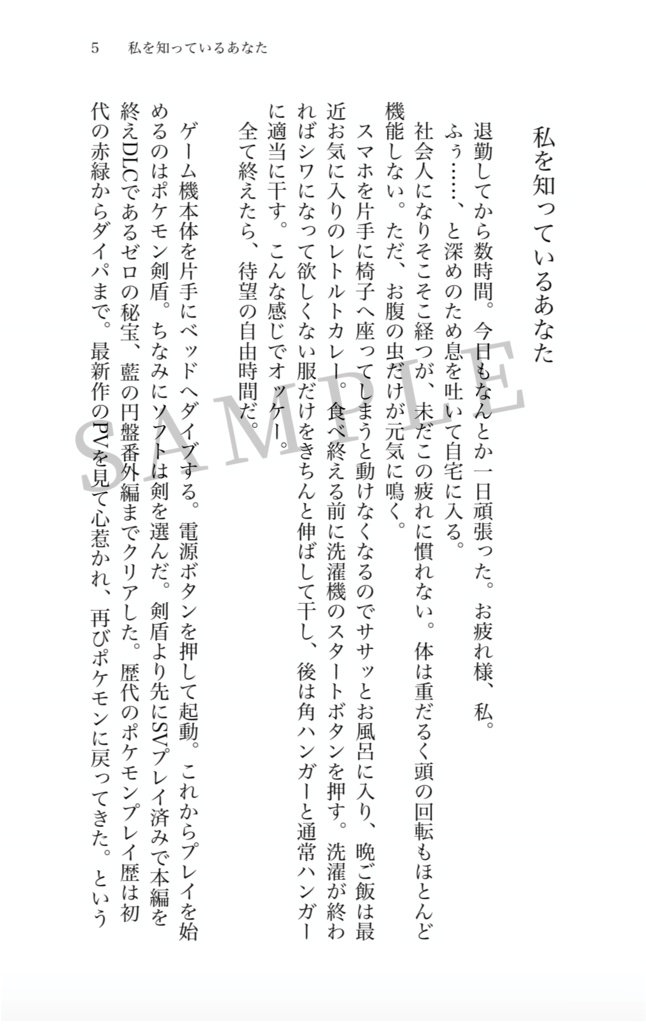 5 私を知っているあなた
私を知っているあなた
退勤してから数時間。今日もなんとか一日頑張った。お疲れ様、私。
ふぅ……、と深めのため息を吐いて自宅に入る。
社会人になりそこそこ経つが、未だこの疲れに慣れない。体は重だるく頭の回転もほとんど
機能しない。ただ、お腹の虫だけが元気に鳴く。
スマホを片手に椅子へ座ってしまうと動けなくなるのでササッとお風呂に入り、晩ご飯は最
近お気に入りのレトルトカレー。食べ終える前に洗濯機のスタートボタンを押す。洗濯が終わ
ればシワになって欲しくない服だけをきちんと伸ばして干し、後は角ハンガーと通常ハンガー
に適当に干す。こんな感じでオッケー。
全て終えたら、待望の自由時間だ。
ゲーム機本体を片手にベッドへダイブする。電源ボタンを押して起動。これからプレイを始
めるのはポケモン剣盾。ちなみにソフトは剣を選んだ。剣盾より先にSVプレイ済みで本編を
終えDLCであるゼロの秘宝、藍の円盤番外編までクリアした。歴代のポケモンプレイ歴は初
代の赤緑からダイパまで。最新作のPVを見て心惹かれ、再びポケモンに戻ってきた。という
SAMPLE